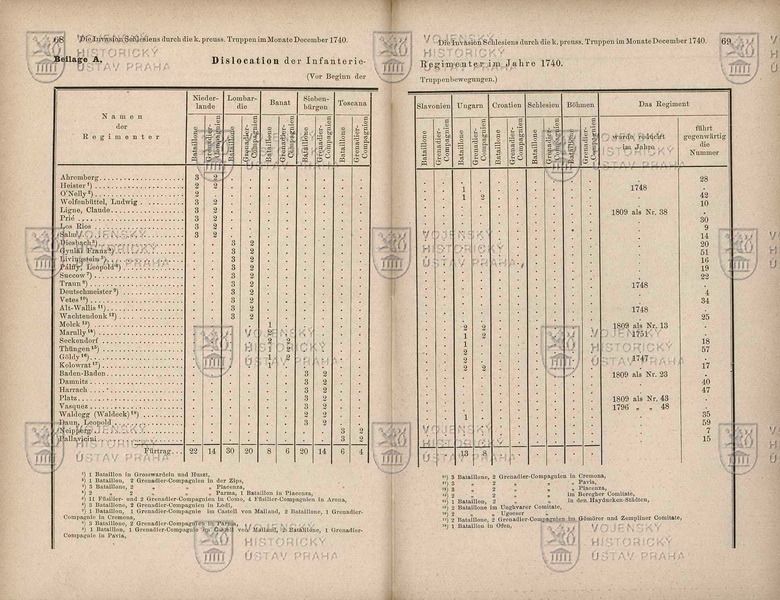 68 Die Invasion Schlesiens durch die k. preuss. Truppen im Monate December 1740.
Beilage A. Dislocation der Infanterie-
(Vor Beginn der
Namen der Regimenter
Nieder-lande Lombar-die Banat Sieben-bürgen Toscana
Bataillone Grenadier-Compagnien Bataillone Grenadier-Compagnien Bataillone Grenadier-Compagnien Bataillone Grenadier-Compagnien Bataillone Grenadier-Compagnien
Ahremberg 3 2
Heister ¹) 2 2
O'Nelly ²) 2
Wolfenbüttel, Ludwig 3 2
Ligne, Claude 3 2
Prié 3 2
Los Rios 3 2
Salm 3 2
Diesbach 3 2
Gyulai Franz 3 2
Livingstein 3 2
Palffy, Leopold 3 2
Succow ⁷) 3 2
Traun 3 2
Deutschmeister 3 2
Vetes ¹⁰) 3 2
Alt-Wallis ¹¹) 3 2
Wachtendonk ¹²) 3 2
Molck ¹³) 1
Marully ¹⁴)
Seckendorf 2
Thüngen ¹⁵) 1 2
Göldy ¹⁶) 1 2
Kolowrat ¹⁷) 1
Baden-Baden 3 2
Damnitz 3 2
Harrach 3 2
Platz 3 2
Vasquez 3 2
Waldegg (Waldeck) 2 2
Daun, Leopold 3 2
Neipperg 3 2
Pallavicini 3 2
Fürtrag 22 14 30 20 8 6 20 14 6 4
¹) 1 Bataillon in Grosswardein und Huszt,
²) 1 Bataillon, 2 Grenadier-Compagnien in der Zips,
³) 3 Bataillone, 2 " " Piacenza,
⁴) 2 " 2 " " Parma, 1 Bataillon in Piacenza,
⁵) 11 Füsilier- und 2 Grenadier-Compagnien in Como, 4 Füsilier-Compagnien in Arona,
⁶) 3 Bataillone, 2 Grenadier-Compagnien in Lodi,
⁷) 1 Bataillon, 1 Grenadier-Compagnie im Castell von Mailand, 2 Bataillone, 1 Grenadier-
Compagnie in Cremona,
⁸) 3 Bataillone, 2 Grenadier-Compagnien in Parma,
⁹) 1 Bataillon, 1 Grenadier-Compagnie im Castell von Mailand, 2 Bataillone, 1 Grenadier-
Compagnie in Pavia,
Die Invasion Schlesiens durch die k. preuss. Truppen im Monate December 1740. 69
Regimenter im Jahre 1740.
Truppenbewegungen.)
Slavonien Ungarn Croatien Schlesien Böhmen Das Regiment
Bataillone Grenadier-Compagnien Bataillone Grenadier-Compagnien Bataillone Grenadier-Compagnien Bataillone Grenadier-Compagnien Bataillone Grenadier-Compagnien wurde reducirt im Jahre führt gegenwärtig die Nummer
28
1 1748
1 2 42
10
1809 als Nr. 38
30
9
14
20
51
16
19
22
1748
4
34
1748
25
2 2 1809 als Nr. 13
2 1751
1 18
2 57
2 1747
2 2 17
1809 als Nr. 23
40
47
1809 als Nr. 43
1796 " " 48
1 35
59
7
15
13 8
¹⁰) 3 Bataillone, 2 Grenadier-Compagnien in Cremona,
¹¹) 3 " 2 " " Pavia,
¹²) 3 " 2 " " Piacenza,
¹³) 2 " 2 " im Beregher Comitate,
¹⁴) 1 Bataillon, 2 " in den Hayducken-Städten,
¹⁵) 2 Bataillone im Unghvarer Comitate,
¹⁶) 2 " " Ugocser "
¹⁷) 2 Bataillone, 2 Grenadier-Compagnien im Gömörer und Zempliner Comitate,
¹⁸) 1 Bataillon in Ofen,
VOJENSKÝ
HISTORICKÝ
ÚSTAV PRAHA